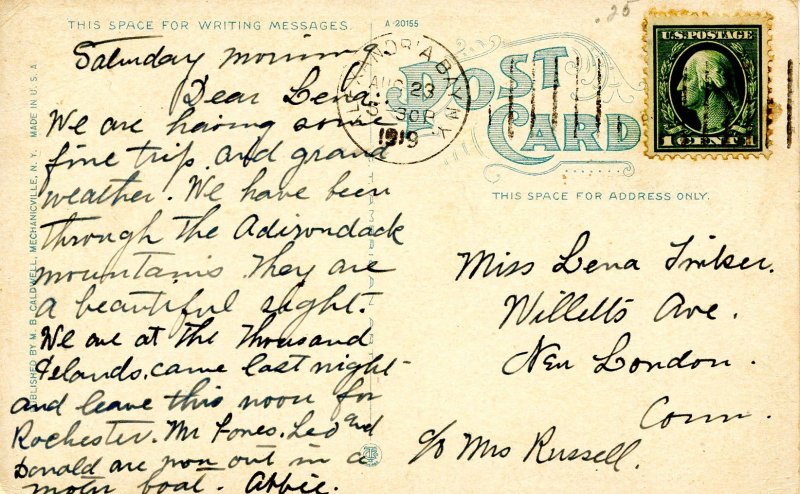 THIS SPACE FOR WRITING MESSAGES.
Saturday morning
Dear Lena:
We are having some
fine trip and grand
weather. We have been
through the Adirondack
mountains. They are
a beautiful sight.
We are at the Thousand
Islands. came last night
and leave this noon for
Rochester. Mr Jones, Leo and
Donald are now out in a
motor boat. Abbie.
PUBLISHED BY M. B. CALDWELL, MECHANICVILLE, N. Y. MADE IN U. S. A.
A-20155
.25
POST CARD
AUG 23
1919
U.S. POSTAGE
1 CENT 1
THIS SPACE FOR ADDRESS ONLY.
Miss Lena
Willetts Ave.
New London.
Conn.
c/o Mrs Russell.